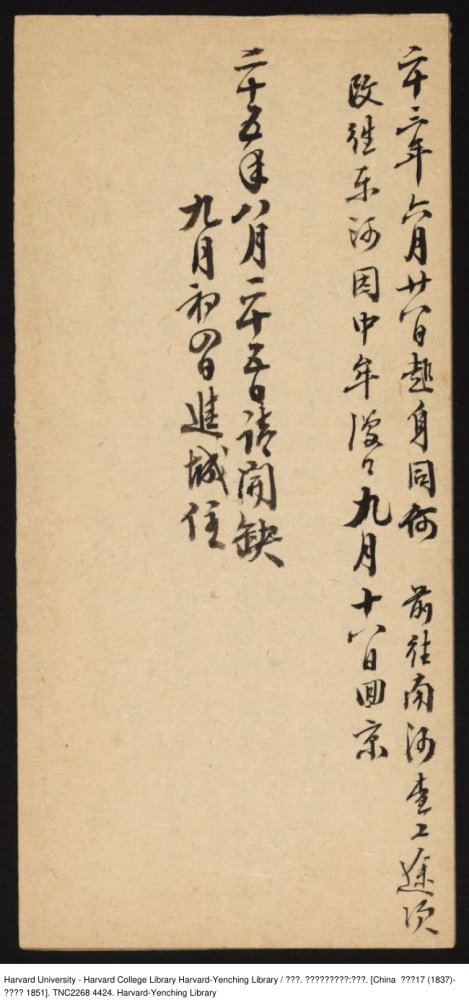 二十三年六月廿八日起身同何 前往南河查工途次
改往东河因中牟漫口九月十八日回京
二十五年八月二十五日请開缺
九月初四日進城住
Harvard University - Harvard College Library Harvard-Yenching Library / ???. ?????????:???. [China ???17 (1837)-
???? 1851]. TNC2268 4424. Harvard-Yenching Library